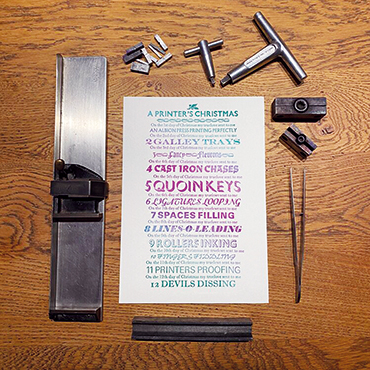 A PRINTER'S CHRISTMAS
On the 1st day of Christmas my truelove sent to me
AN ALBION PRESS PRINTING PERFECTLY
On the 2nd day of Christmas my truelove sent to me
2 GALLEY TRAYS
On the 3rd day of Christmas my truelove sent to me
3 Fancy Flowers
On the 4th day of Christmas my truelove sent to me
4 CAST IRON CHASES
On the 5th day of Christmas my truelove sent to me
5 QUOIN KEYS
On the 6th day of Christmas my truelove sent to me
6 LIGATURES LOOPING
On the 7th day of Christmas my truelove sent to me
7 SPACES FILLING
On the 8th day of Christmas my truelove sent to me
8 LINES-O-LEADING
On the 9th day of Christmas my truelove sent to me
9 ROLLERS INKING
On the 10th day of Christmas my truelove sent to me
10 FINGERS FIDDLING
On the 11th day of Christmas my truelove sent to me
11 PRINTERS PROOFING
On the 12th day of Christmas my truelove sent to me
12 DEVILS DISSING